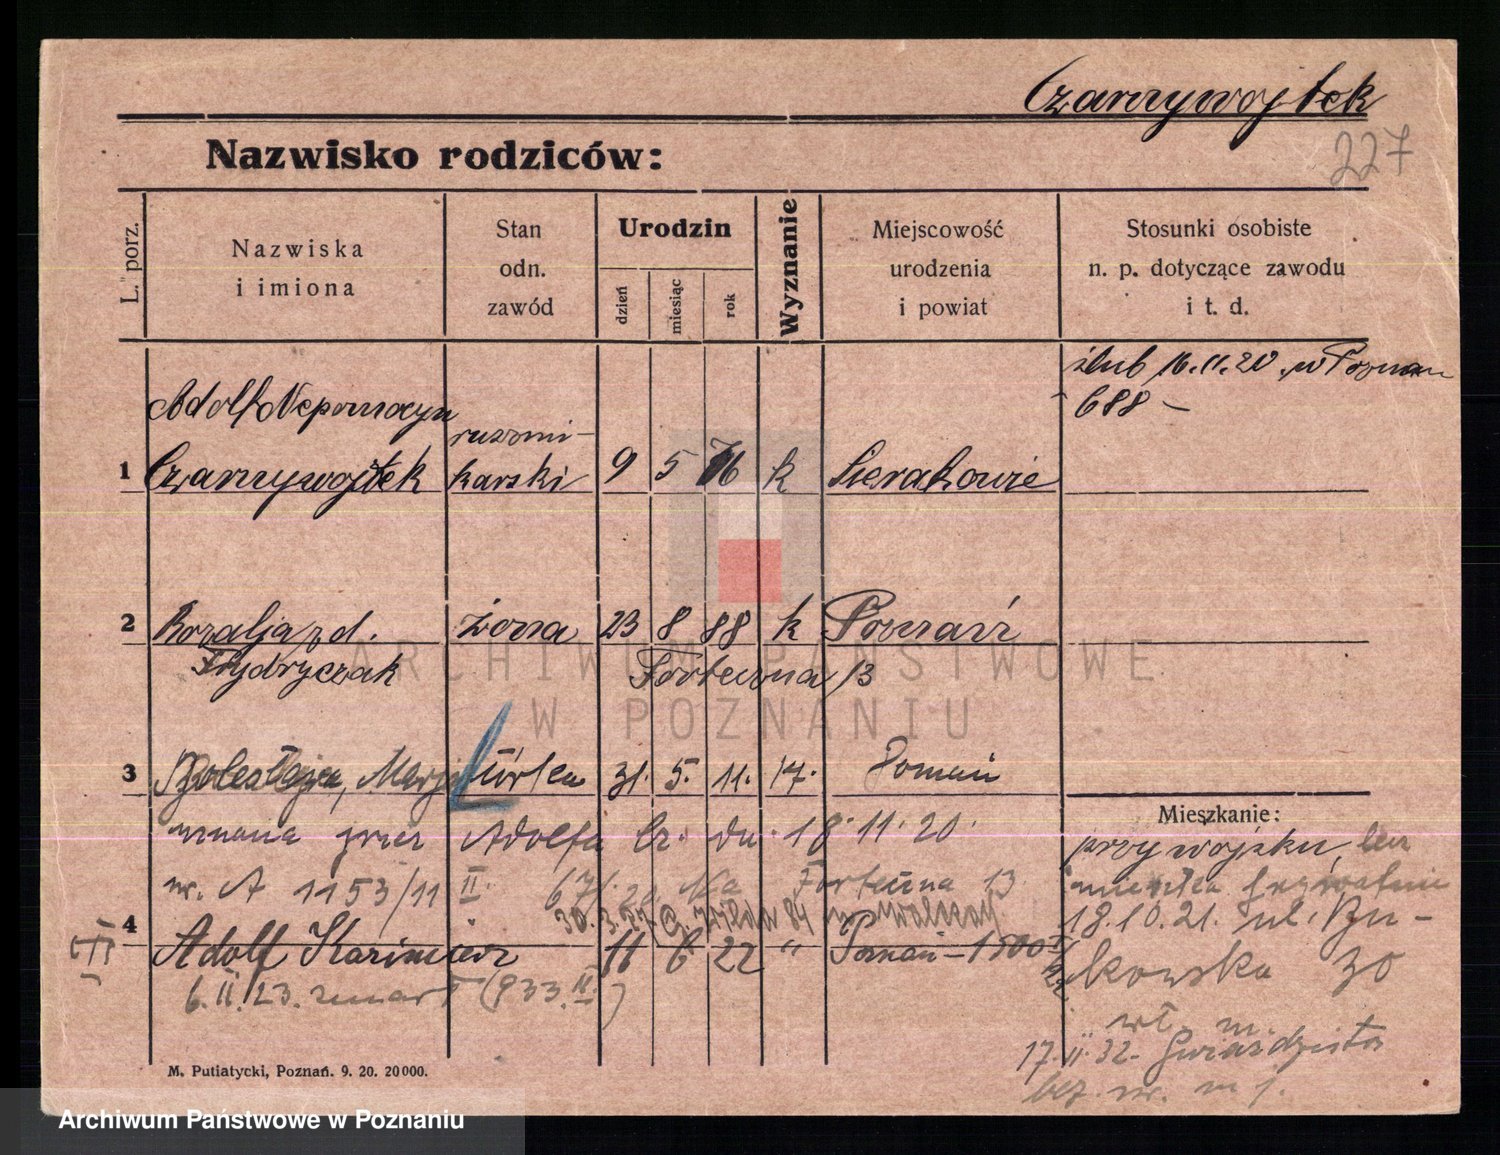 Czarnywojtek
227
Nazwisko rodziców:
L. porz.
Nazwiska
i imiona
Stan
odn.
zawód
Urodzin
dzień
miesiąc
rok
Wyznanie
Miejscowość
urodzenia
i powiat
Stosunki osobiste
n. p. dotyczące zawodu
i t. d.
ślub 16.11.20. w Poznan
688 –
Adolf Nepomocyn
1 Czarnywojtek karski 9 5 76 k Sierakowie
2 Rozalja z d. żona 23 8 88 k Poznań
Frydryczak Forteczna 13
3 Bolesława, Marja córka 31. 5. 11. 17. Poznań
uznana przez Adolfa Cz. dn. 18.11.20.
nr. A 1153/11 II. 67/20 Na Forteczna 13
30.3.27
4 Adolf Kazimierz 11 6 22 " Poznań – 1500
6.II.23. zmarł (933.II.)
Mieszkanie:
przy wojsku, lecz
mieszka prywatnie
18.10.21. ul. Bu-
kowska 30
wł. m.
17.II.32. Gwiaździsta
bez. nr. m 1.
M. Putiatycki, Poznań. 9. 20. 20000.
ARCHIWUM PAŃSTWOWE
W POZNANIU
Archiwum Państwowe w Poznaniu